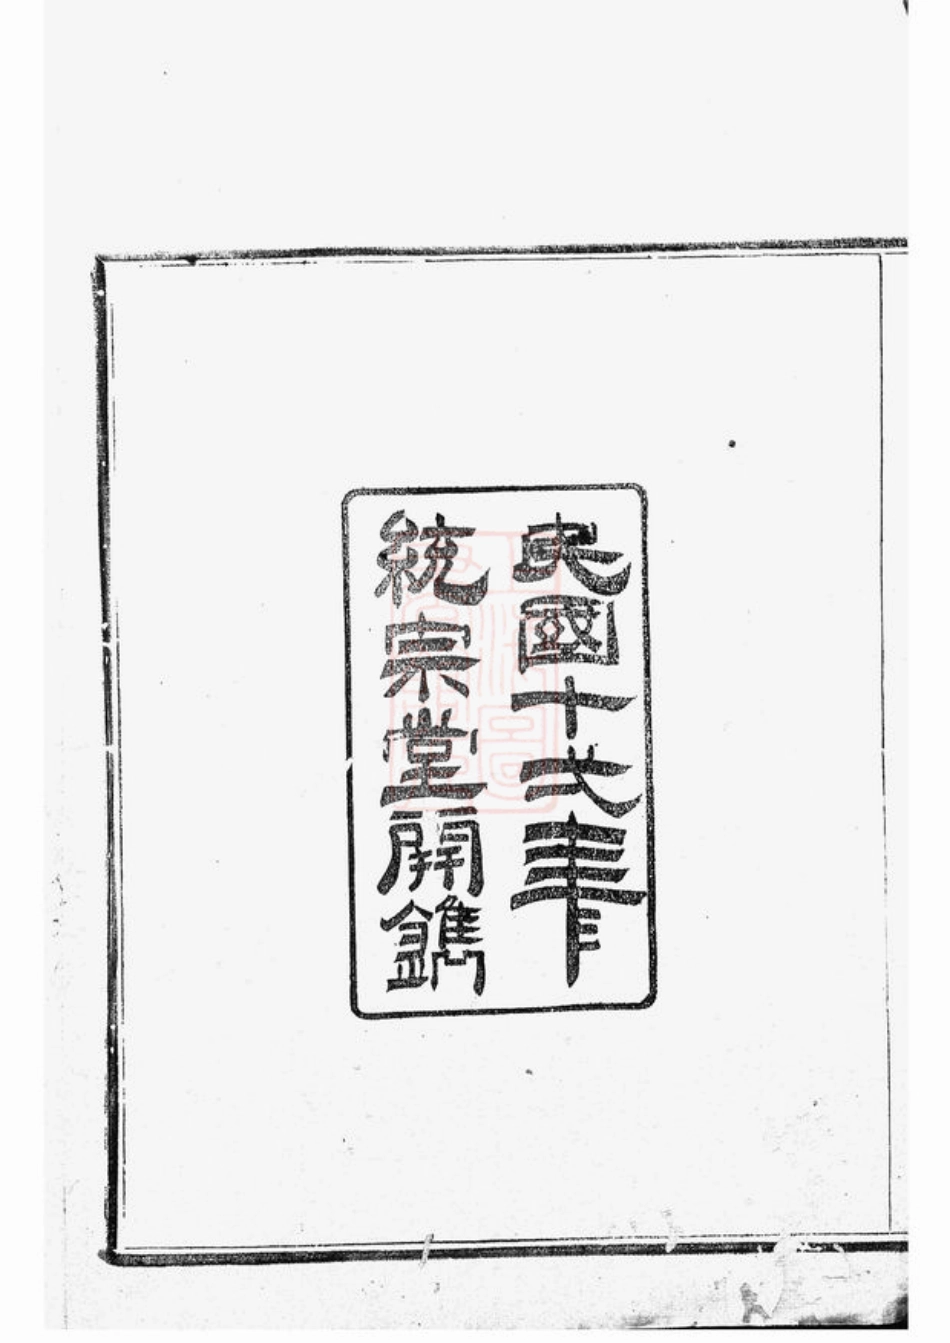 民國十六年
統宗堂開鐫